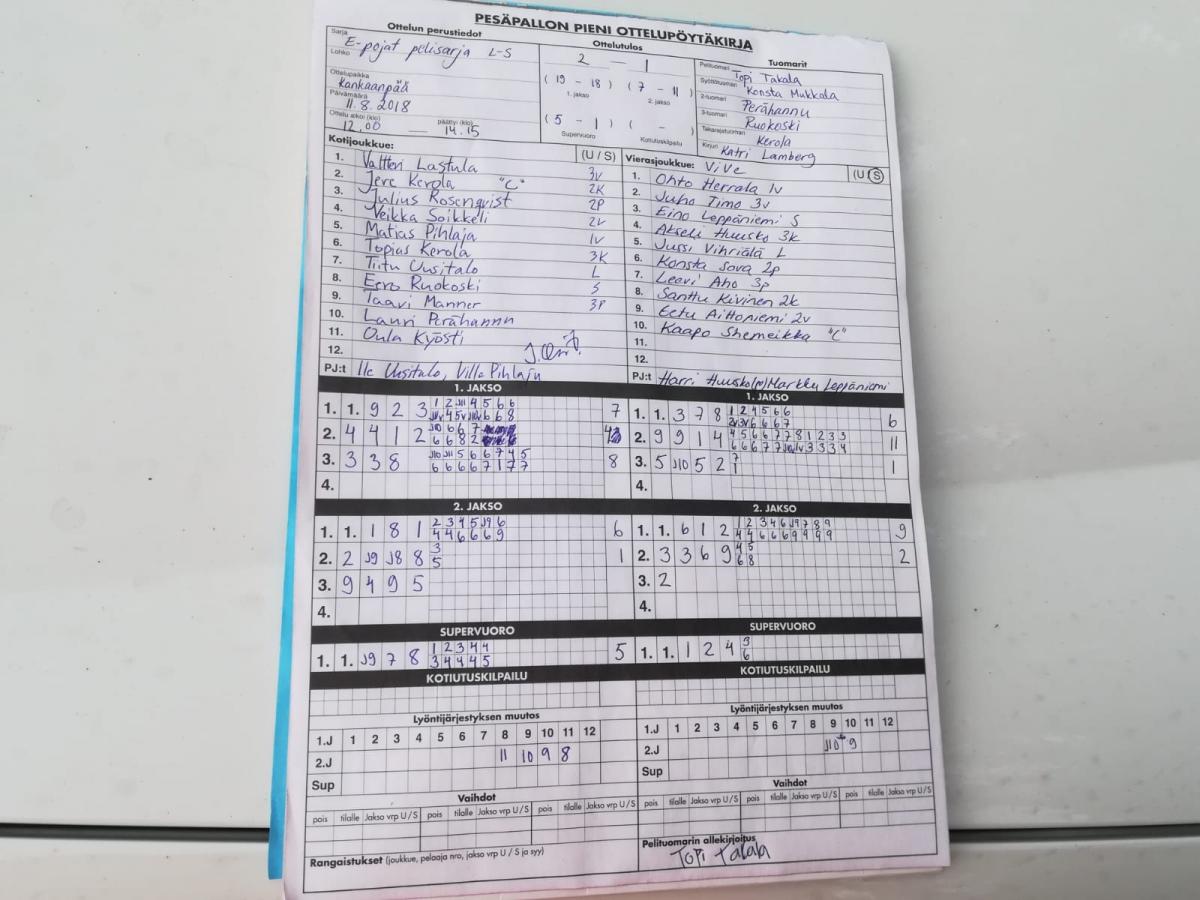 PESÄPALLON PIENI OTTELUPÖYTÄKIRJA
Ottelun perustiedot
Ottelutulos
Tuomarit
Sarja E-pojat pelisarja L-S
Lohko
Ottelupaikka Kankaanpää
Päivämäärä 11.8.2018
Ottelu alkoi (klo) 12.00 — päättyi (klo) 14.15
2 — 1
( 19 - 18 ) ( 7 - 11 )
1. jakso 2. jakso
( 5 - 1 ) ( - )
Supervuoro Kotiutuskilpailu
Pelituomari Topi Takala
Syöttötuomari Konsta Mukkala
2-tuomari Perähannu
3-tuomari Ruokoski
Takarajatuomari Kerola
Kirjuri Katri Lamberg
Kotijoukkue: (U / S)
1. Valtteri Lastula 3v
2. Jere Kerola "C" 2K
3. Julius Rosenqvist 2P
4. Veikka Soikkeli 2v
5. Matias Pihlaja 1v
6. Topias Kerola 3K
7. Tiitu Uusitalo L
8. Eero Ruokoski S
9. Taavi Manner 3P
10. Lauri Perähannu
11. Oula Kyösti
12.
PJ:t Uusitalo, Ville Pihlaja
Vierasjoukkue: ViVe (U S)
1. Ohto Herrala 1v
2. Juho Timo 3v
3. Eino Leppäniemi S
4. Akseli Huusko 3k
5. Jussi Vihriälä L
6. Konsta Sova 2p
7. Leevi Aho 3p
8. Santtu Kivinen 2k
9. Eetu Aittoniemi 2v
10. Kaapo Shemeikka "C"
11.
12.
PJ:t Harri Huusko Markku Leppäniemi
1. JAKSO
1. 1. 9 2 3 7
2. 4 4 1 2 4
3. 3 3 8 8
4.
1. JAKSO
1. 1. 3 7 8 1 2 4 5 6 6 6
2. 9 9 1 4 4 5 6 6 7 7 8 1 2 3 3 11
3. 5 J10 5 2 7 1 1
4.
2. JAKSO
1. 1. 1 8 1 2 3 4 5 J9 6 6
4 4 6 6 6 9
2. 2 J9 J8 8 3 5 1
3. 9 4 9 5
4.
2. JAKSO
1. 1. 6 1 2 1 2 3 4 6 J9 7 8 9 9
4 4 6 6 6 9 9 9 9
2. 3 3 6 9 4 5 2
6 8
3. 2
4.
SUPERVUORO
1. 1. J9 7 8 1 2 3 4 4 5
3 4 4 4 5
SUPERVUORO
1. 1. 1 2 4 3 6
KOTIUTUSKILPAILU
KOTIUTUSKILPAILU
Lyöntijärjestyksen muutos
1.J 1 2 3 4 5 6 7 8 9 10 11 12
2.J 11 10 9 8
Sup
Lyöntijärjestyksen muutos
1.J 1 2 3 4 5 6 7 8 9 10 11 12
2.J J10 9
Sup
Vaihdot
pois tilalle Jakso vrp U / S pois tilalle Jakso vrp U / S pois tilalle Jakso vrp U / S
Vaihdot
pois tilalle Jakso vrp U / S pois tilalle Jakso vrp U / S pois tilalle Jakso vrp U / S
Rangaistukset (joukkue, pelaaja nro, jakso vrp U / S ja syy)
Pelituomarin allekirjoitus
Topi Takala